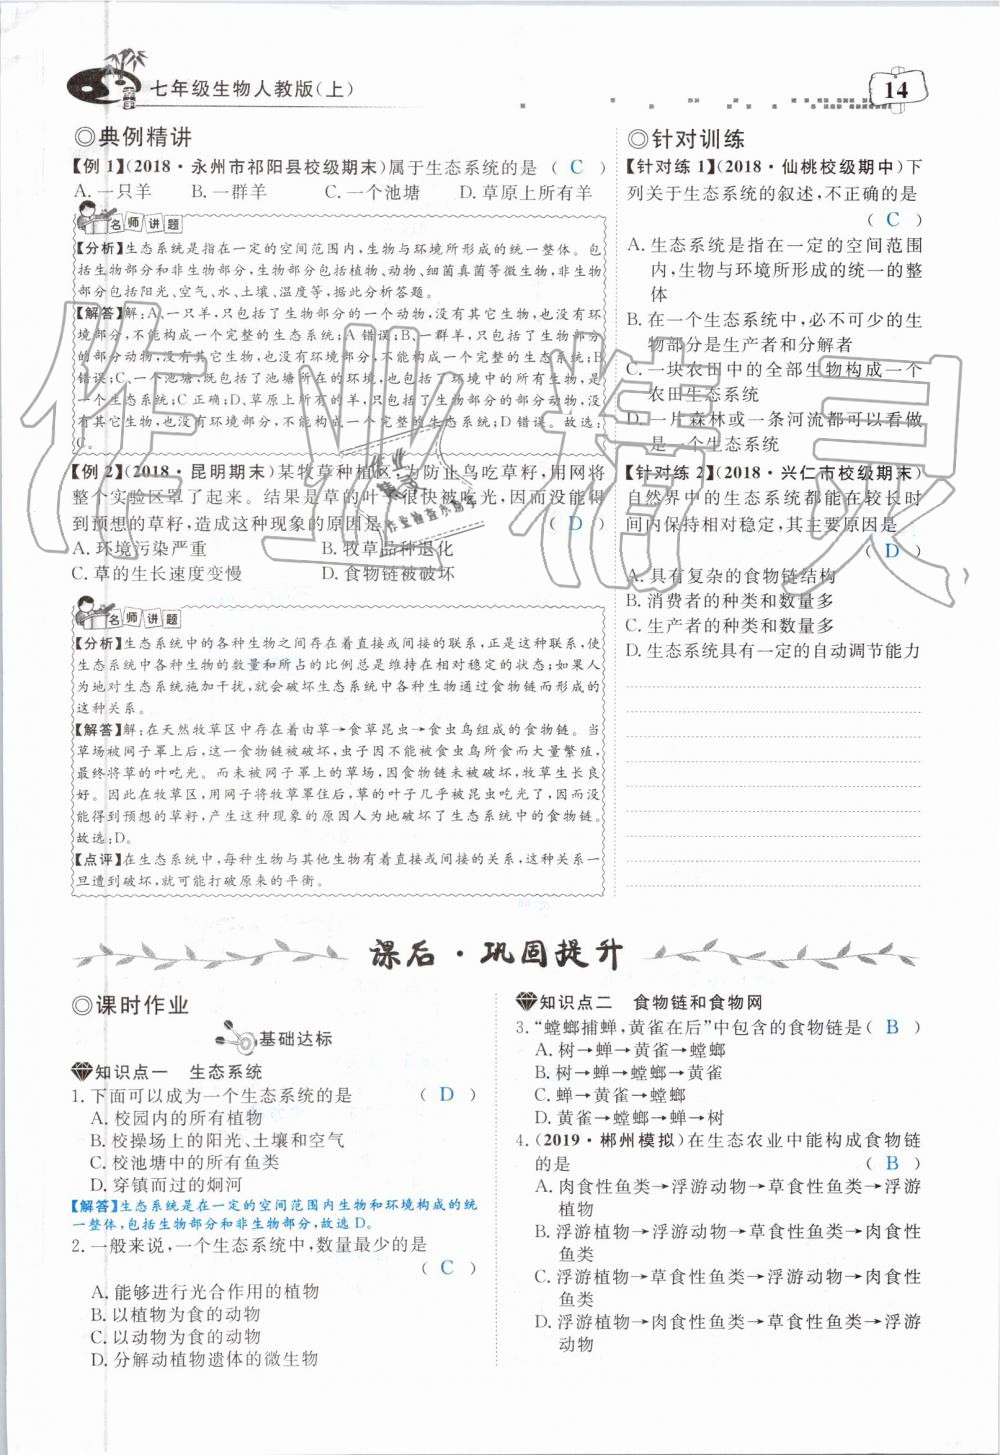 七年级生物人教版(上)
14
◎典例精讲
【例 1】(2018·永州市祁阳县校级期末)属于生态系统的是 ( C )
A. 一只羊 B. 一群羊 C. 一个池塘 D. 草原上所有羊
名师讲题
【分析】生态系统是指在一定的空间范围内,生物与环境所形成的统一整体。包
括生物部分和非生物部分,生物部分包括植物、动物、细菌真菌等微生物,非生物
部分包括阳光、空气、水、土壤、温度等,据此分析答题。
【解答】解:A、一只羊,只包括了生物部分的一个动物,没有其它生物,也没有环
境部分,不能构成一个完整的生态系统;A 错误;B、一群羊,只包括了生物部分
的部分动物,没有其它生物和环境部分,不能构成一个完整的生态系统;B
错误;C、一个池塘,既包括了池塘所在的环境,也包括了环境中的所有生物,是
一个生态系统;C 正确;D、草原上所有的羊,只包括了生物部分的部分动物,没
有其它生物,也没有环境部分,不能构成一个完整的生态系统;D 错误。故选:
C。
【例 2】(2018·昆明期末)某牧草种植区,为防止鸟吃草籽,用网将
整个实验区罩了起来。结果是草的叶子很快被吃光,因而没能得
到预想的草籽,造成这种现象的原因是 ( D )
A. 环境污染严重 B. 牧草品种退化
C. 草的生长速度变慢 D. 食物链被破坏
名师讲题
【分析】生态系统中的各种生物之间存在着直接或间接的联系,正是这种联系,使
生态系统中各种生物的数量和所占的比例总是维持在相对稳定的状态;如果人
为地对生态系统施加干扰,就会破坏生态系统中各种生物通过食物链而形成的
这种关系。
【解答】解:在天然牧草区中存在着由草→食草昆虫→食虫鸟组成的食物链。当
草场被网子罩上后,这一食物链被破坏,虫子因不能被食虫鸟所食而大量繁殖,
最终将草的叶吃光。而未被网子罩上的草场,因食物链未被破坏,牧草生长良
好。因此在牧草区,用网子将牧草罩住后,草的叶子几乎被昆虫吃光了,因而没
能得到预想的草籽,产生这种现象的原因人为地破坏了生态系统中的食物链。
故选:D。
【点评】在生态系统中,每种生物与其他生物有着直接或间接的关系,这种关系一
旦遭到破坏,就可能打破原来的平衡。
◎针对训练
【针对练 1】(2018·仙桃校级期中)下
列关于生态系统的叙述,不正确的是
( C )
A. 生态系统是指在一定的空间范围
内,生物与环境所形成的统一的整
体
B. 在一个生态系统中,必不可少的生
物部分是生产者和分解者
C. 一块农田中的全部生物构成一个
农田生态系统
D. 一片森林或一条河流都可以看做
是一个生态系统
【针对练 2】(2018·兴仁市校级期末)
自然界中的生态系统都能在较长时
间内保持相对稳定,其主要原因是
( D )
A. 具有复杂的食物链结构
B. 消费者的种类和数量多
C. 生产者的种类和数量多
D. 生态系统具有一定的自动调节能力
课后·巩固提升
◎课时作业
基础达标
知识点一 生态系统
1. 下面可以成为一个生态系统的是 ( D )
A. 校园内的所有植物
B. 校操场上的阳光、土壤和空气
C. 校池塘中的所有鱼类
D. 穿镇而过的炯河
【解答】生态系统是在一定的空间范围内生物和环境构成的统
一整体,包括生物部分和非生物部分,故选 D。
2. 一般来说,一个生态系统中,数量最少的是
( C )
A. 能够进行光合作用的植物
B. 以植物为食的动物
C. 以动物为食的动物
D. 分解动植物遗体的微生物
知识点二 食物链和食物网
3. “螳螂捕蝉,黄雀在后”中包含的食物链是( B )
A. 树→蝉→黄雀→螳螂
B. 树→蝉→螳螂→黄雀
C. 蝉→黄雀→螳螂
D. 黄雀→螳螂→蝉→树
4. (2019·郴州模拟)在生态农业中能构成食物链
的是 ( B )
A. 肉食性鱼类→浮游动物→草食性鱼类→浮游
植物
B. 浮游植物→浮游动物→草食性鱼类→肉食性
鱼类
C. 浮游植物→草食性鱼类→浮游动物→肉食性
鱼类
D. 浮游植物→肉食性鱼类→草食性鱼类→浮游
动物
作业精灵